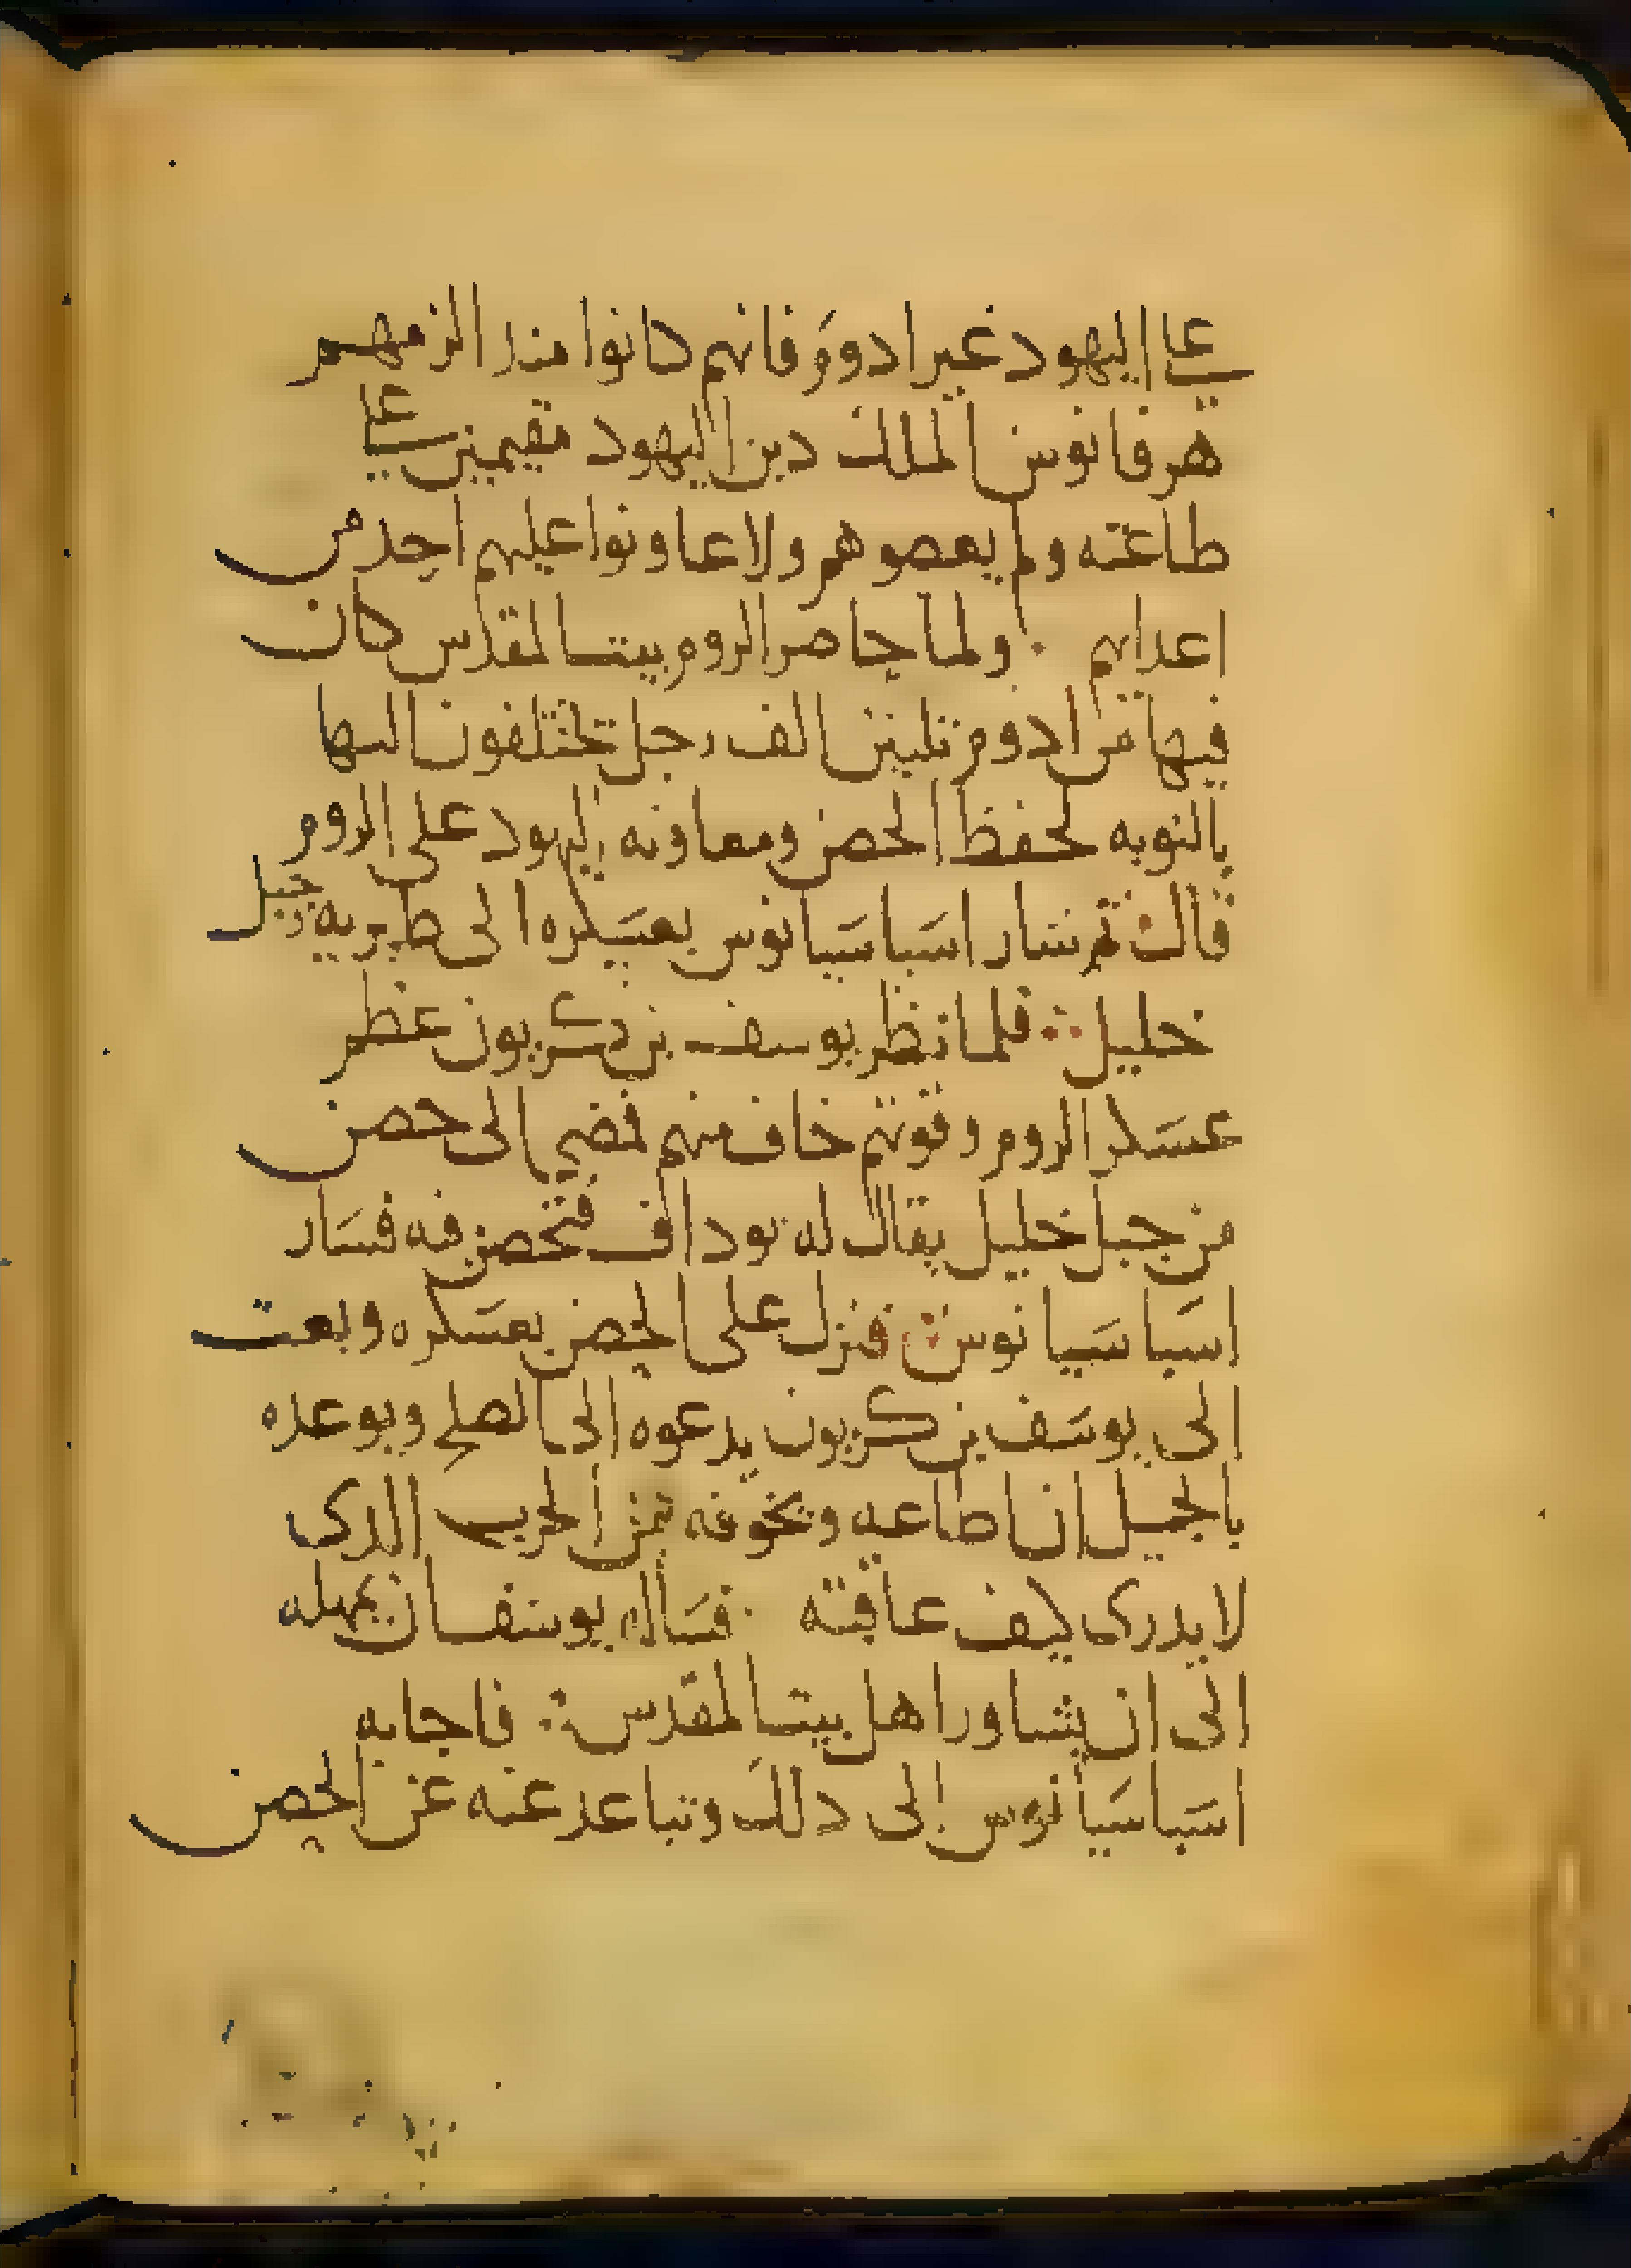 على اليهود غير ادوم فانهم كانوا منذ الزمهم
هرقانوس الملك دين اليهود مقيمين على
طاعته ولم يعصوهم ولا عاونوا عليهم احد من
اعدايهم . ولما حاصر الروم بيت المقدس كان
فيها من ادوم تلتين الف رجل تختلفون اليها
بالنوبه لحفظ الحصن ومعاونه اليهود على الروم
قال ثم سار اسباسيانوس بعسكره الى طبريه وجبل
خليل فلما نظر يوسف بن كريون عظم
عسكر الروم وقوتهم خاف منهم فمضى الى حصن
من جبل خليل يقال له يوداف فتحصن فيه فسار
اسباسيانوس فنزل على الحصن بعسكره وبعت
الى يوسف بن كريون يدعوه الى الصلح ويوعده
بالجميل ان اطاعه ويخوفه من الحرب الدى
لا يدرى كيف عاقبته . فساله يوسف ان يمهله
الى ان يشاور اهل بيت المقدس فاجابه
اسباسيانوس الى دلك وتباعد عنه عن الحصن